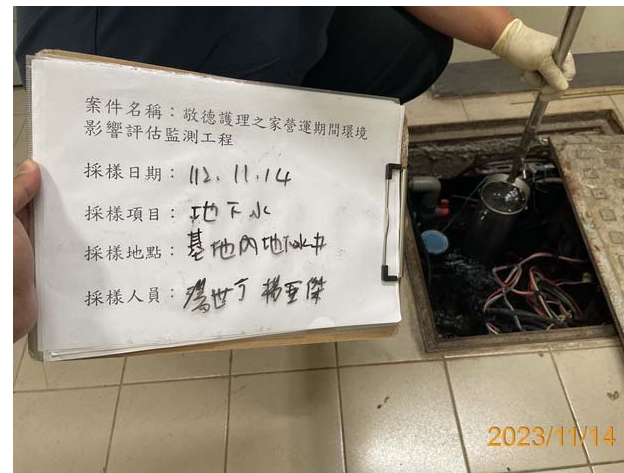 案件名稱：敬德護理之家營運期間環境
影響評估監測工程
採樣日期：112.11.14
採樣項目：地下水
採樣地點：基地內地下水井
採樣人員：楊世 楊亞傑
2023/11/14